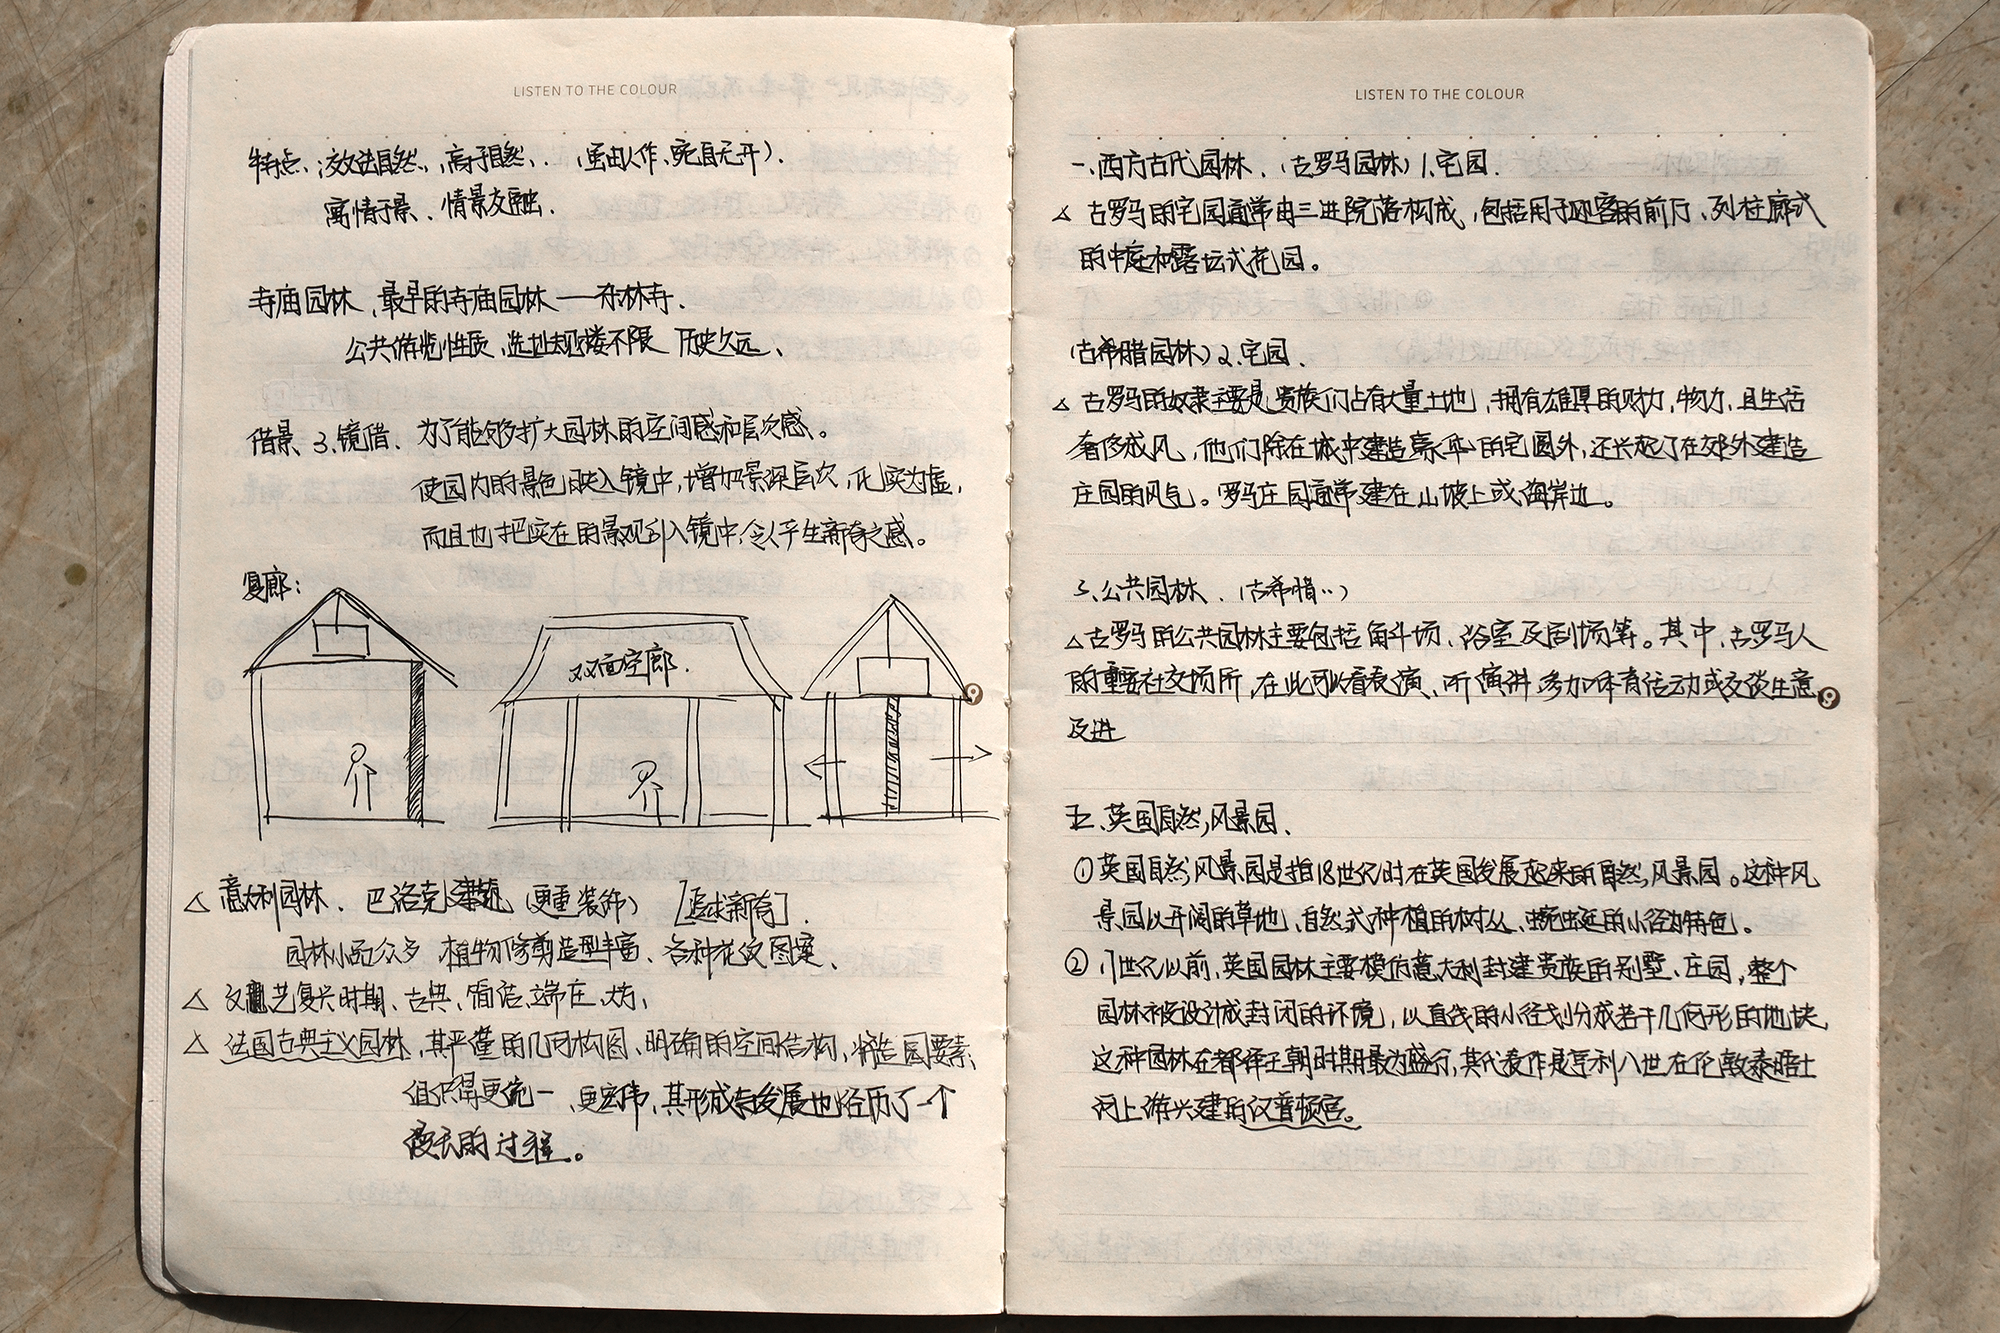 LISTEN TO THE COLOUR
特点、效法自然、高于自然、（虽由人作、宛自天开）.
寓情于景、情景交融.
寺庙园林、最早的寺庙园林——东林寺.
公共游览性质、选址规模不限 历史久远、
借景 3.镜借、为了能够扩大园林的空间感和层次感。
使园内的景色映入镜中,增加景深层次,化实为虚,
而且也把实在的景观引入镜中,令人产生新奇之感。
复廊:
双面空廊.
△ 意大利园林、巴洛克建筑（更重装饰） [追求新奇].
园林小品众多 植物修剪造型丰富、各种花纹图案、
△ 文艺复兴时期、古典、简洁、端庄、大方、
△ 法国古典主义园林,其严谨的几何构图、明确的空间结构,将造园要素
组织得更统一、更宏伟、其形成与发展也经历了一个
漫长的过程。
9
LISTEN TO THE COLOUR
一、西方古代园林、（古罗马园林）1、宅园.
△ 古罗马的宅园通常由三进院落构成,包括用于迎客的前厅、列柱廊式
的中庭和露坛式花园。
（古希腊园林）2、宅园、
△ 古罗马的奴隶主要是贵族们占有大量土地,拥有雄厚的财力,物力,且生活
奢侈成风,他们除在城中建造豪华的宅园外,还兴起了在郊外建造
庄园的风气。罗马庄园通常建在山坡上或海岸边。
3、公共园林、（古希腊..）
△古罗马的公共园林主要包括角斗场、浴室及剧场等。其中,古罗马人
的重要社交场所,在此可以看表演、听演讲,参加体育活动或交谈生意
及进
9
五、英国自然风景园、
① 英国自然风景园是指18世纪时在英国发展起来的自然风景园。这种风
景园以开阔的草地、自然式种植的树丛、蜿蜒的小径为特色。
② 17世纪以前,英国园林主要模仿意大利封建贵族的别墅、庄园,整个
园林被设计成封闭的环境,以直线的小径划分成若干几何形的地块,
这种园林在都铎王朝时期最为盛行,其代表作是亨利八世在伦敦泰晤士
河上游兴建的汉普顿宫。